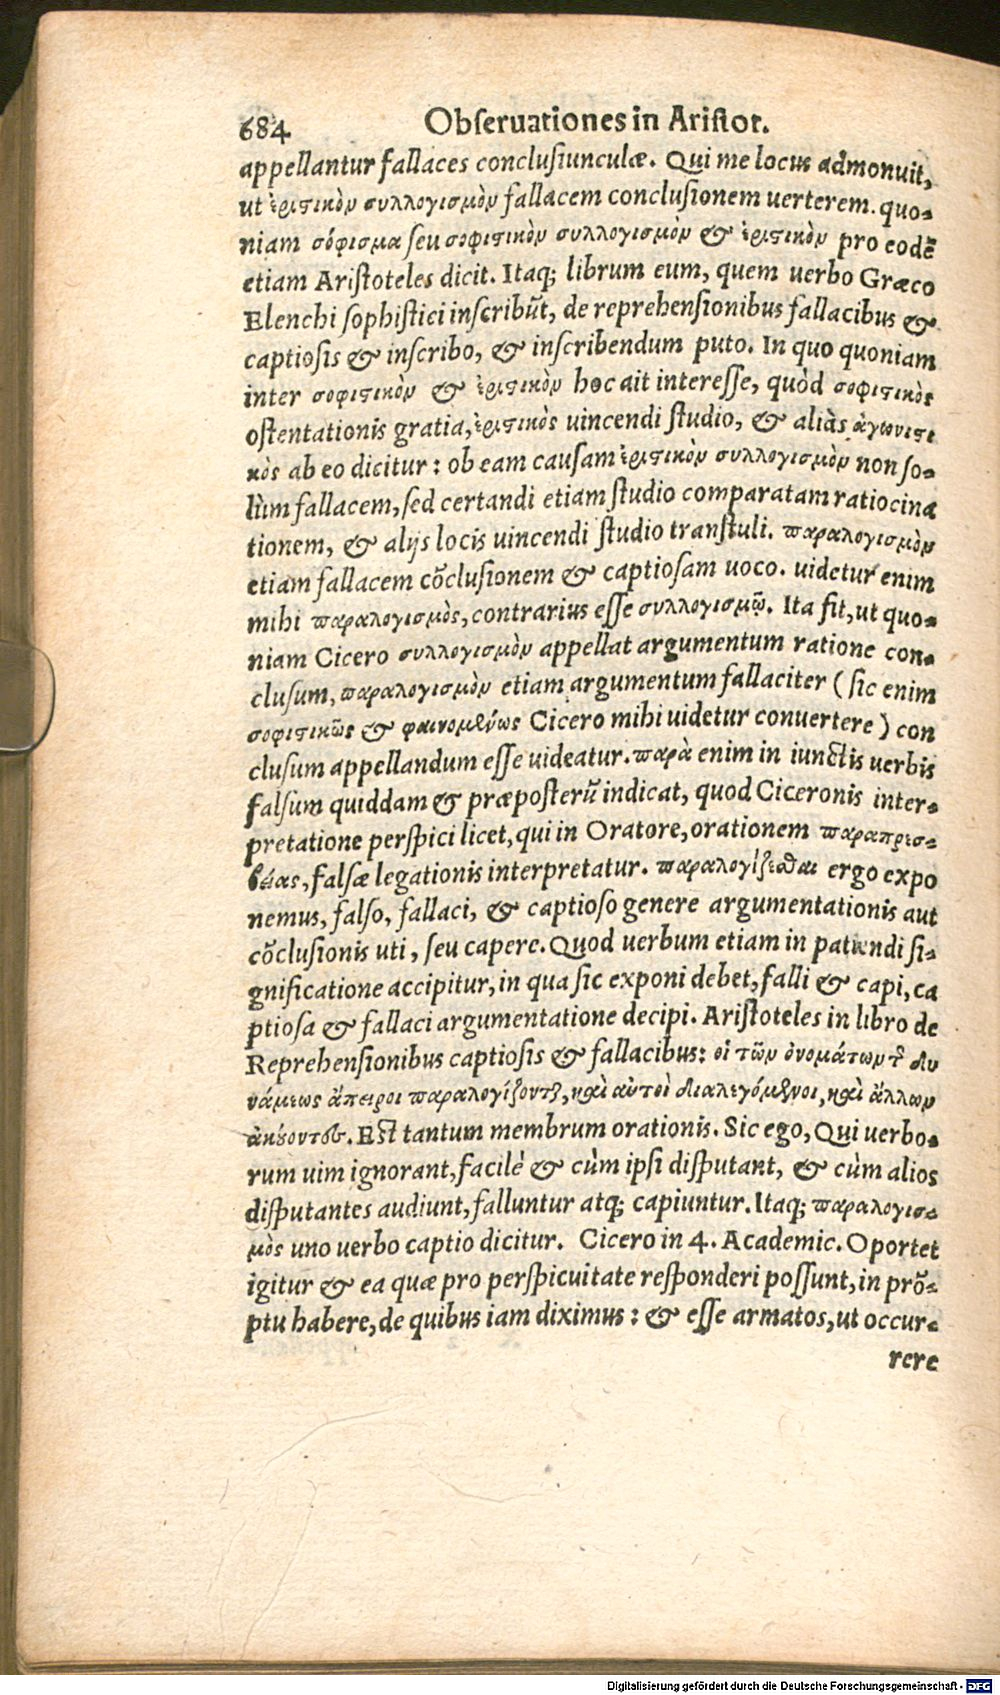 684 Obſeruationes in Ariſtot.
appellantur fallaces concluſiunculæ. Qui me locus admonuit,
ut ἐριστικὸν συλλογισμὸν fallacem concluſionem uerterem. quo-
niam σόφισμα ſeu σοφιστικὸν συλλογισμὸν & ἐριστικὸν pro eodē
etiam Ariſtoteles dicit. Itaq; librum eum, quem uerbo Græco
Elenchi ſophiſtici inſcribūt, de reprehenſionibus fallacibus &
captioſis & inſcribo, & inſcribendum puto. In quo quoniam
inter σοφιστικὸν & ἐριστικὸν hoc ait intereſſe, quòd σοφιστικὸς
oſtentationis gratia, ἐριστικὸς uincendi ſtudio, & aliàs ἀγωνιστι
κὸς ab eo dicitur: ob eam cauſam ἐριστικὸν συλλογισμὸν non ſo-
lùm fallacem, ſed certandi etiam ſtudio comparatam ratiocina
tionem, & alijs locis uincendi ſtudio tranſtuli. παραλογισμὸν
etiam fallacem cōcluſionem & captioſam uoco. uidetur enim
mihi παραλογισμὸς, contrarius eſſe συλλογισμῷ. Ita fit, ut quo-
niam Cicero συλλογισμὸν appellat argumentum ratione con-
cluſum, παραλογισμὸν etiam argumentum fallaciter (ſic enim
σοφιστικῶς & φαινομένως Cicero mihi uidetur conuertere) con
cluſum appellandum eſſe uideatur. παρὰ enim in iunctis uerbis
falſum quiddam & præpoſterū indicat, quod Ciceronis inter-
pretatione perſpici licet, qui in Oratore, orationem παραπρεσ-
βείας, falſæ legationis interpretatur. παραλογίζεσθαι ergo expo
nemus, falſo, fallaci, & captioſo genere argumentationis aut
cōcluſionis uti, ſeu capere. Quod uerbum etiam in patiendi ſi-
gnificatione accipitur, in qua ſic exponi debet, falli & capi, ca
ptioſa & fallaci argumentatione decipi. Ariſtoteles in libro de
Reprehenſionibus captioſis & fallacibus: οἱ τῶν ὀνομάτων τῆς δυ
νάμεως ἄπειροι παραλογίζονται, καὶ αὐτοὶ διαλεγόμενοι, καὶ ἄλλων
ἀκούοντες. Eſt tantum membrum orationis. Sic ego, Qui uerbo-
rum uim ignorant, facilè & cùm ipſi diſputant, & cùm alios
diſputantes audiunt, falluntur atq; capiuntur. Itaq; παραλογισ-
μὸς uno uerbo captio dicitur. Cicero in 4. Academic. Oportet
igitur & ea quæ pro perſpicuitate reſponderi poſſunt, in prō-
ptu habere, de quibus iam diximus: & eſſe armatos, ut occur-
rere
Digitalisierung gefördert durch die Deutsche Forschungsgemeinschaft - DFG